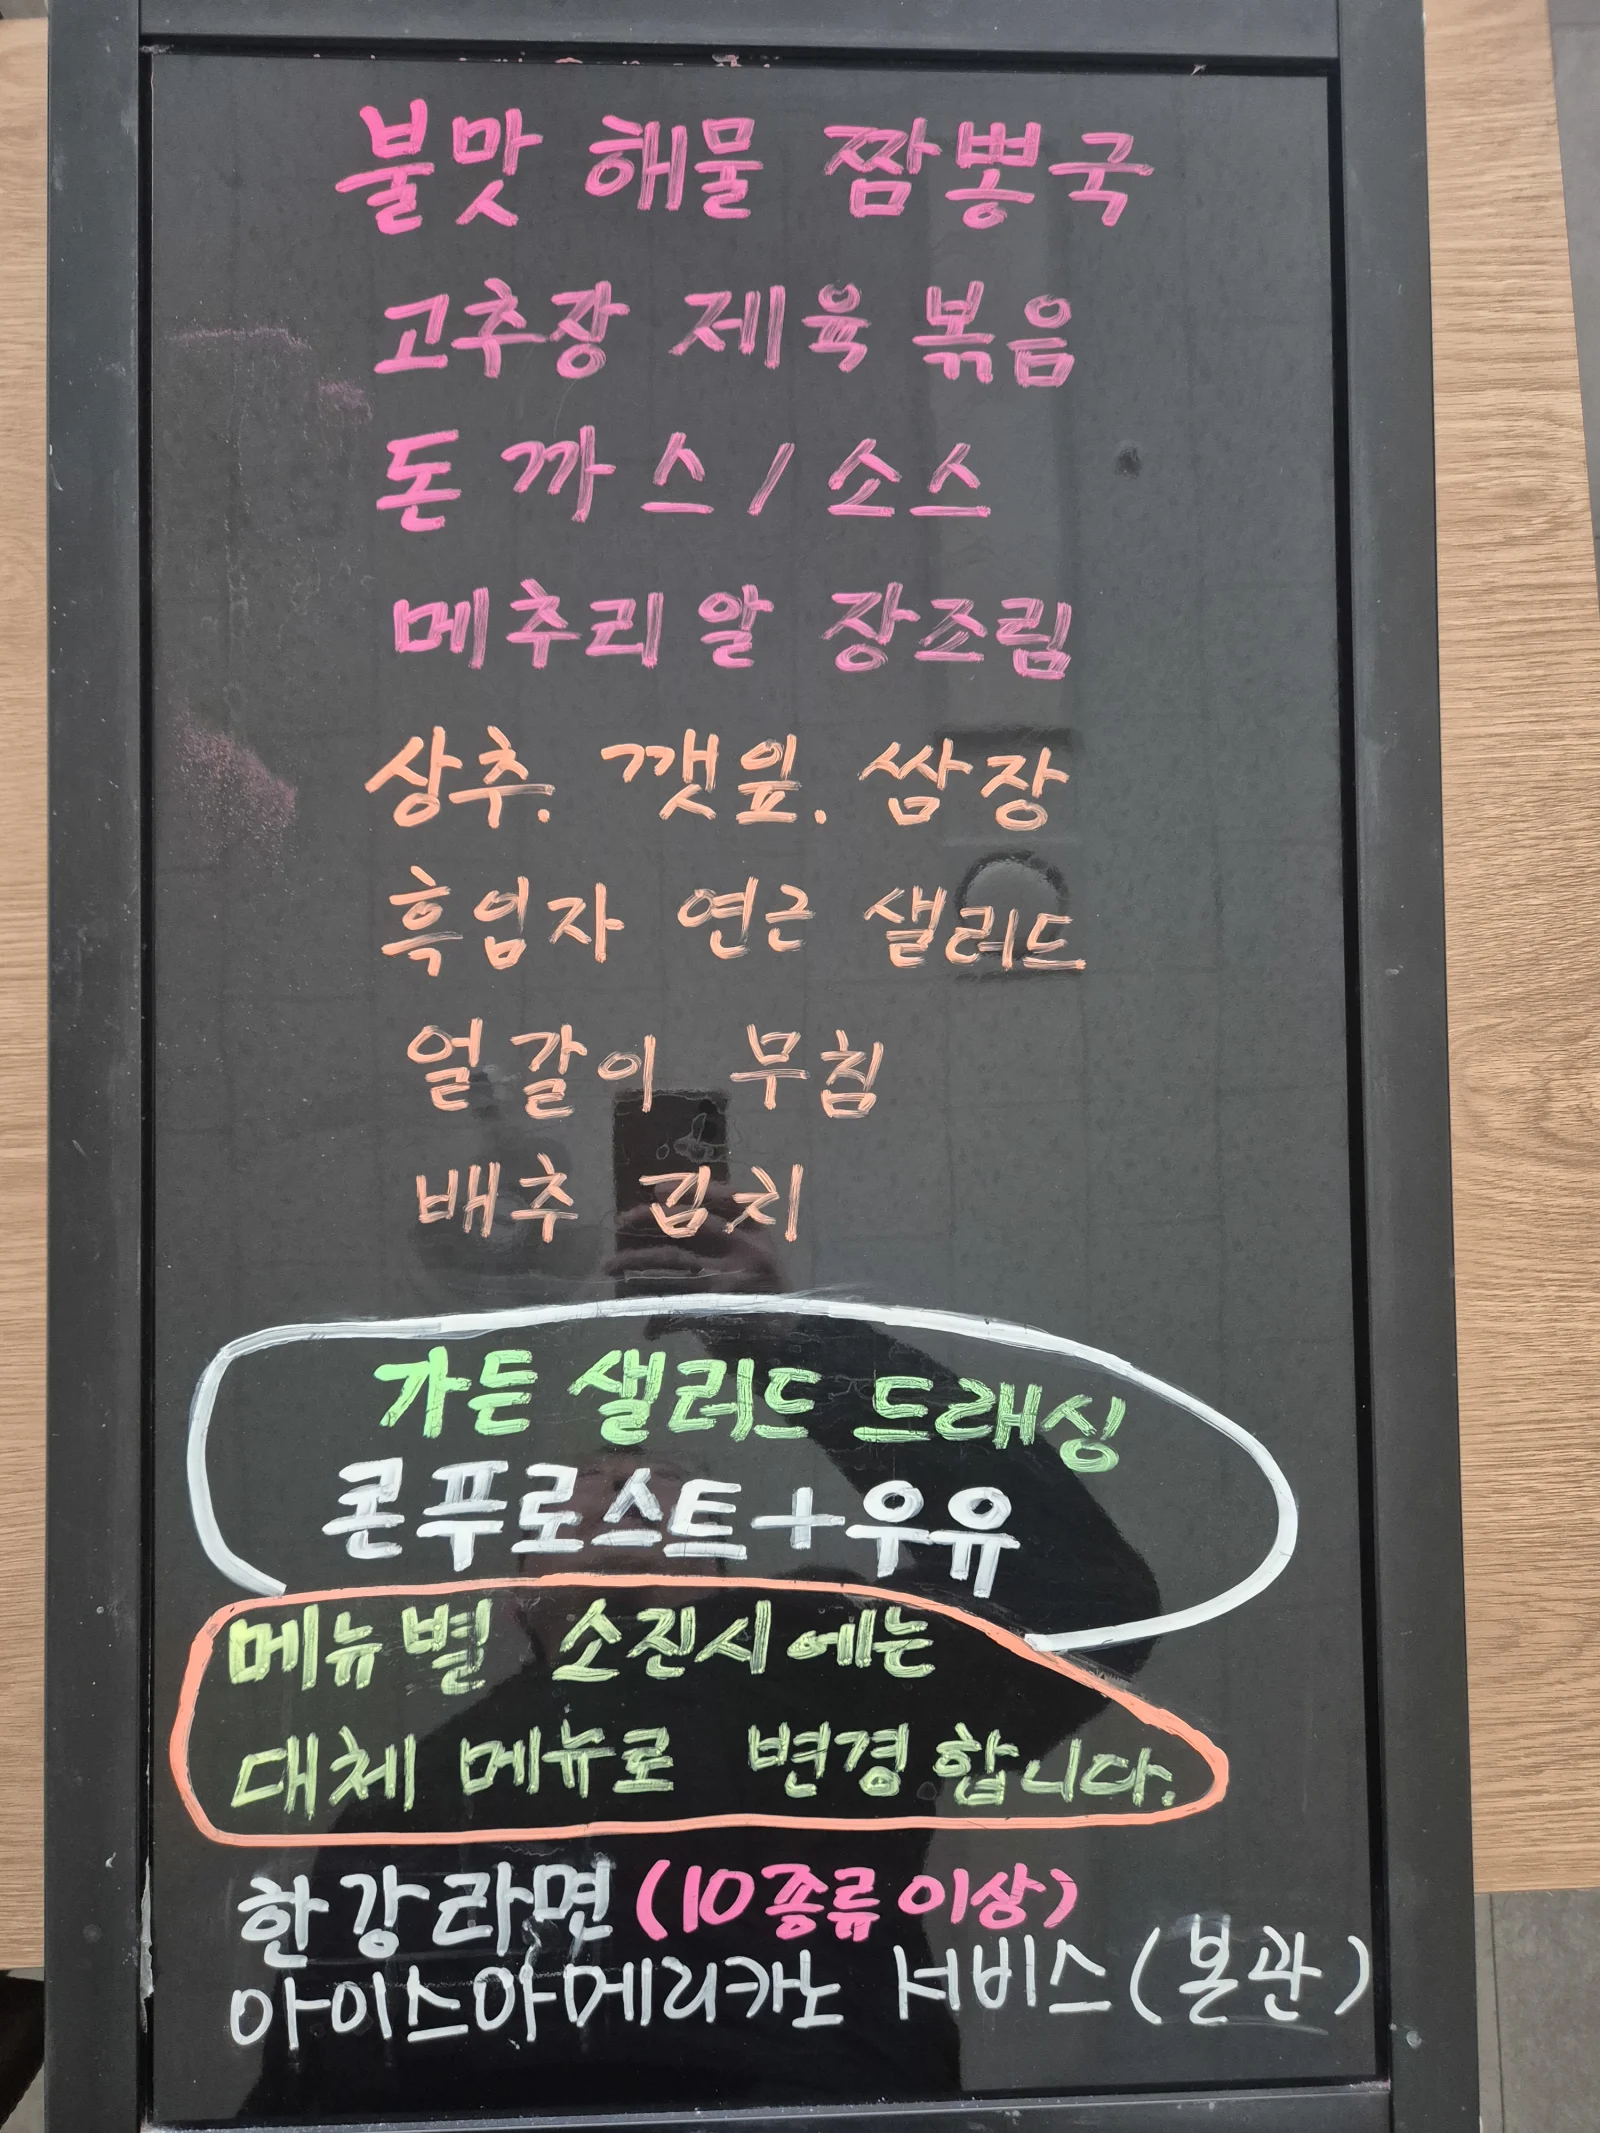 불맛 해물 짬뽕국
고추장 제육 볶음
돈까스/소스
메추리알 장조림
상추. 깻잎. 쌈장
흑임자 연근 샐러드
얼갈이 무침
배추 김치
가든 샐러드 드래싱
콘푸로스트+우유
메뉴별 소진시에는
대체 메뉴로 변경합니다.
한강라면 (10종류이상)
아이스아메리카노 서비스(본관)